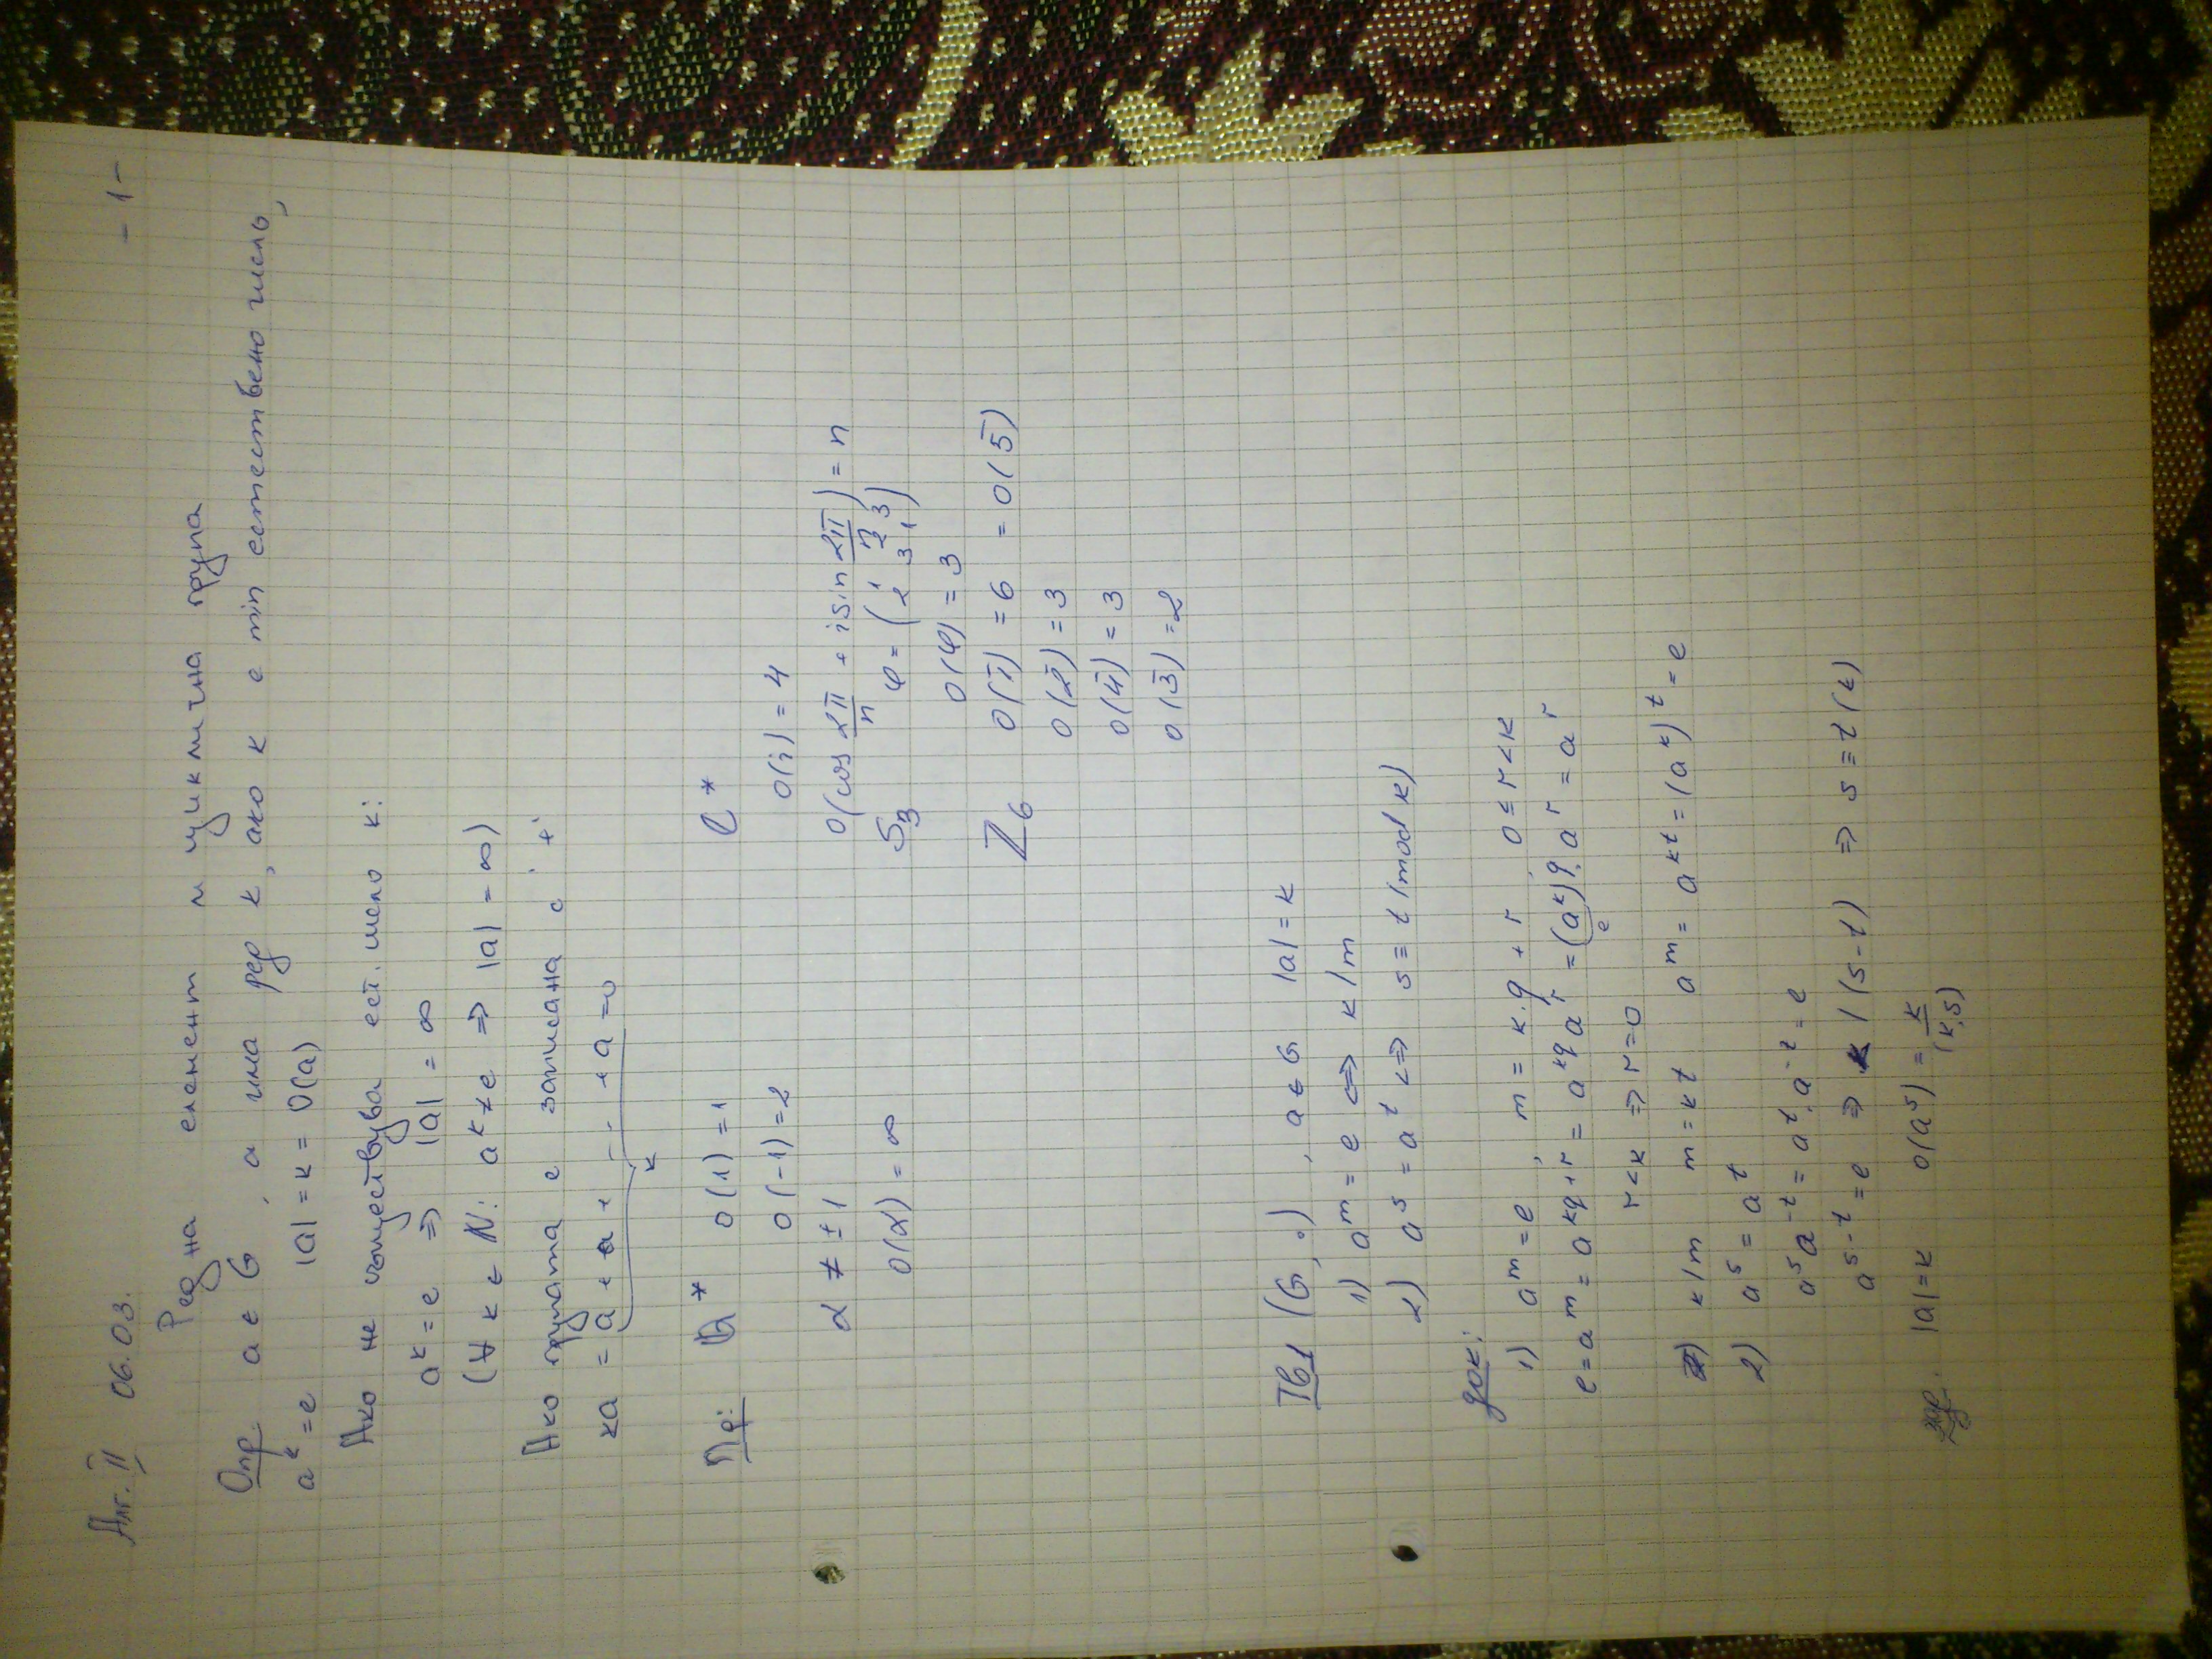 Алг. II 06.03. - 1 -
Ред на елемент и циклична група
Опр a ∈ G, a има ред k, ако k е min естествено число,
a^k = e |a| = k = O(a)
Ако не съществува ест. число k:
a^k = e ⇒ |a| = ∞
(∀ k ∈ N: a^k ≠ e ⇒ |a| = ∞)
Ако групата е записана с '+'
ka = a + a + ... + a = 0
k
Пр: Q* o(1) = 1 C*
o(-1) = 2 o(i) = 4
α ≠ ±1 o(cos 2π/n + i sin 2π/n) = n
o(α) = ∞ S₃ φ = (1 2 3 / 2 3 1)
o(φ) = 3
Z₆ o(1̄) = 6 = o(5̄)
o(2̄) = 3
o(4̄) = 3
o(3̄) = 2
Тв1 (G, .), a ∈ G |a| = k
1) a^m = e ⇔ k/m
2) a^s = a^t ⇔ s ≡ t (mod k)
Док:
1) a^m = e, m = k.q + r, 0 ≤ r < k
e = a^m = a^{kq+r} = a^{kq} a^r = (a^k)^q . a^r = a^r
e
r < k ⇒ r = 0
k/m m = kt a^m = a^{kt} = (a^k)^t = e
2) a^s = a^t
a^s a^{-t} = a^t . a^{-t} = e
a^{s-t} = e ⇒ k / (s-t) ⇒ s ≡ t (k)
|a| = k o(a^s) = k/(k,s)